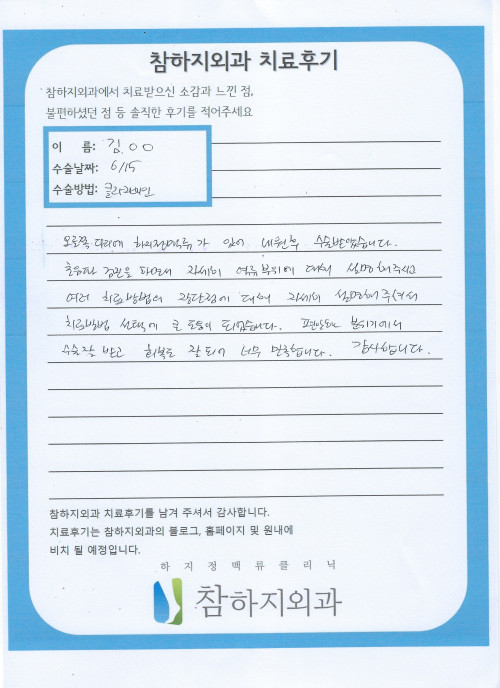 참하지외과 치료후기
참하지외과에서 치료받으신 소감과 느낀 점,
불편하셨던 점 등 솔직한 후기를 적어주세요
이 름: 김 OO
수술날짜: 6/15
수술방법: 클라리베인
오른쪽 다리에 하지정맥류가 있어 내원후 수술받았습니다.
초음파 검진을 하면서 자세히 역류부위에 대해 설명해주시고
여러 치료방법의 장단점에 대해 자세히 설명해주셔서
치료방법 선택에 큰 도움이 되었습니다. 편안한 분위기에서
수술 잘 받고 회복도 잘 되어 너무 만족합니다. 감사합니다.
참하지외과 치료후기를 남겨 주셔서 감사합니다.
치료후기는 참하지외과의 블로그, 홈페이지 및 원내에
비치 될 예정입니다.
하지정맥류클리닉
참하지외과